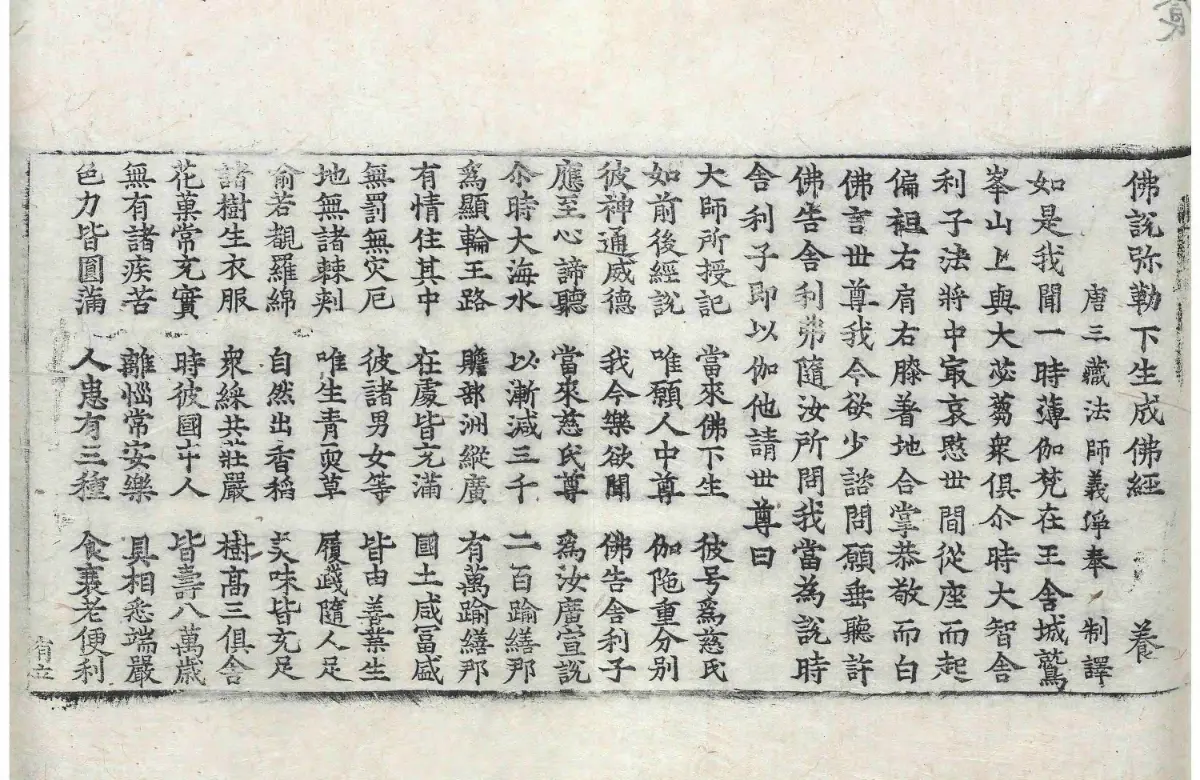 佛說弥勒下生成佛經 養
唐三藏法師義淨奉 制譯
如是我聞一時薄伽梵在王舍城鷲
峯山上與大苾蒭衆俱尒時大智舍
利子法將中㝡哀愍世間從座而起
偏袒右肩右膝著地合掌恭敬而白
佛言世尊我今欲少諮問願垂聽許
佛告舍利弗隨汝所問我當為說時
舍利子即以伽他請世尊曰
大師所授記 當來佛下生 彼号爲慈氏
如前後經說 唯願人中尊 伽陁重分別
彼神通威德 我今樂欲聞 佛告舍利子
應至心諦聽 當來慈氏尊 爲汝廣宣說
尒時大海水 以漸減三千 二百踰繕那
爲顯輪王路 贍部洲縱廣 有萬踰繕那
有情住其中 在處皆充滿 國土咸冨盛
無罰無灾厄 彼諸男女等 皆由善業生
地無諸棘刾 唯生青耎草 履踐隨人足
喻若覩羅綿 自然出香稻 美味皆充足
諸樹生衣服 衆綵共莊嚴 樹高三俱舍
花菓常充實 時彼國中人 皆壽八萬歲
無有諸疾苦 離惱常安樂 具相悉端嚴
色力皆圓滿 人患有三種 食衰老便利